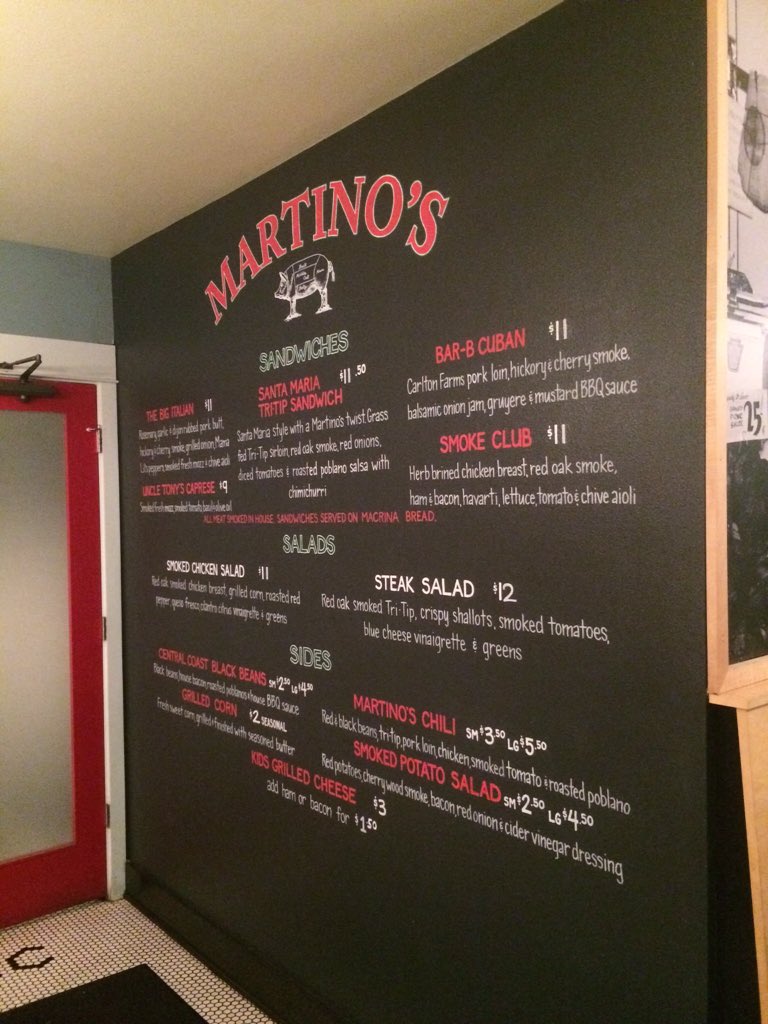 MARTINO'S
SANDWICHES
THE BIG ITALIAN $11
Rosemary, garlic & dijon rubbed pork butt,
hickory & cherry smoke, grilled onion, Mama
Lil's peppers, smoked fresh mozz & chive aioli
UNCLE TONY'S CAPRESE $9
Smoked fresh mozz, smoked tomato, basil & olive oil
SANTA MARIA
TRITIP SANDWICH $11.50
Santa Maria style with a Martino's twist. Grass
fed Tri-Tip sirloin, red oak smoke, red onions,
diced tomatoes & roasted poblano salsa with
chimichurri
BAR-B CUBAN $11
Carlton Farms pork loin, hickory & cherry smoke,
balsamic onion jam, gruyere & mustard BBQ sauce
SMOKE CLUB $11
Herb brined chicken breast, red oak smoke,
ham & bacon, havarti, lettuce, tomato & chive aioli
ALL MEAT SMOKED IN HOUSE. SANDWICHES SERVED ON MACRINA BREAD.
SALADS
SMOKED CHICKEN SALAD $11
Red oak smoked chicken breast, grilled corn, roasted red
pepper, queso fresco, cilantro citrus vinaigrette & greens
STEAK SALAD $12
Red oak smoked Tri-Tip, crispy shallots, smoked tomatoes,
blue cheese vinaigrette & greens
SIDES
CENTRAL COAST BLACK BEANS SM $2.50 LG $4.50
Black beans, house bacon, roasted poblanos & house BBQ sauce
GRILLED CORN $2 SEASONAL
Fresh sweet corn, grilled & finished with seasoned butter
MARTINO'S CHILI SM $3.50 LG $5.50
Red & black beans, tri-tip, pork loin, chicken, smoked tomato & roasted poblano
SMOKED POTATO SALAD SM $2.50 LG $4.50
Red potatoes, cherry wood smoke, bacon, red onion & cider vinegar dressing
KIDS GRILLED CHEESE $3
add ham or bacon for $1.50
25
C